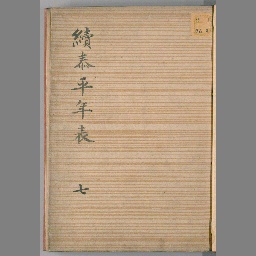 續泰平年表 七